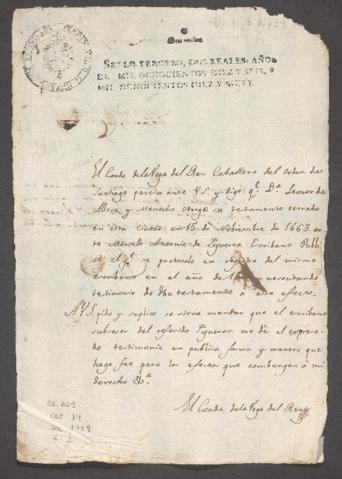 SELLO TERCERO, DOS REALES: AÑOS
DE MIL OCHOCIENTOS DIEZ Y SEIS, Y
MIL OCHOCIENTOS DIEZ Y SIETE.
El Conde de la Vega del Ren Caballero del Orden de
Santiago paresco ante VS. y digo: q.e D.a Leonor de
y otorgó su testamento cerrado
en esta ciudad en 15 de Nobiembre de 1663. an
te Marcelo Antonio de Figueroa Escribano Publi
co el q.e se protocolo en registro del mismo
escribano en el año de y necesitando
testimonio de dho testamento a este efecto.
A VS. pido y suplico se sirva mandar que el escribano
subcesor del referido Figueroa me dé el expresa
do testimonio en publica forma y manera que
haga fee para los efectos que combengan a mi
derecho &.a
El Conde de la Vega del Ren